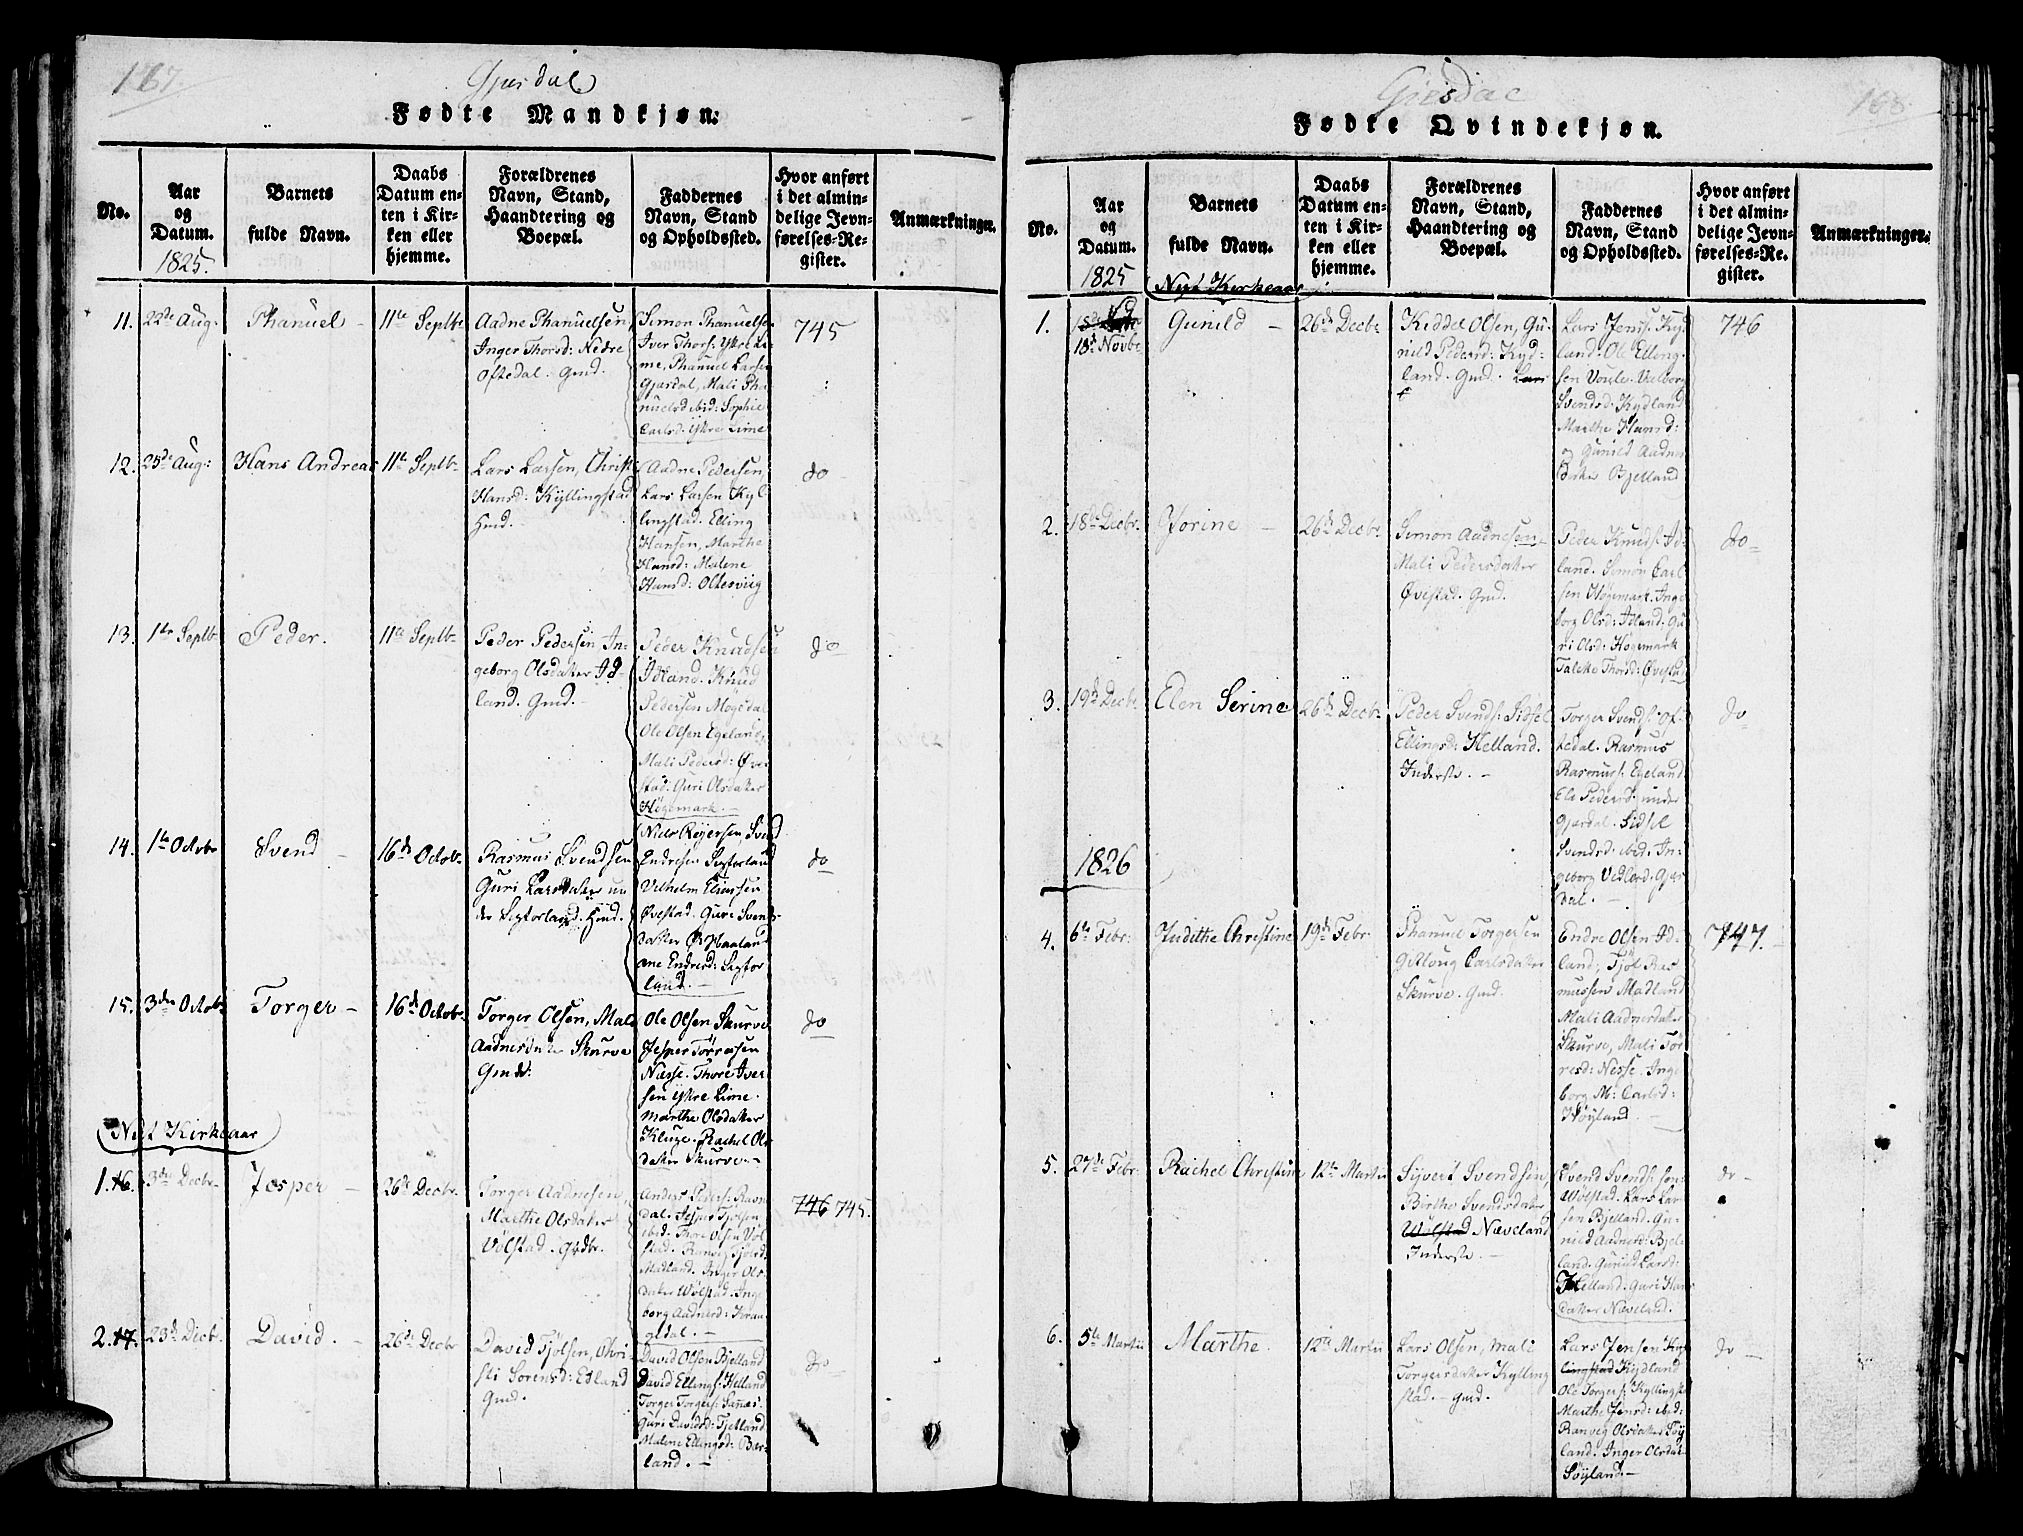 167.
Gjesdal
Fødte Mandkjøn:
No.
Aar
og
Datum.
1825.
Barnets
fulde Navn.
Daabs
Datum en-
ten i Kir-
ken eller
hjemme.
Forældrenes
Navn, Stand,
Haandtering og
Boepæl.
Faddernes
Navn, Stand
og Opholdssted.
Hvor anført
i det almin-
delige Jevn-
førelses-Re-
gister.
Anmærkninger.
11.
22de Aug.
Phanuel
11te Septbr
Aadne Phanuelsen,
Inger Thorsd: Nedre
Oftedal. Gmd.
Simon Phanuelsen
Iver Thors: Ytre Li-
me, Phanuel Larsen
Gjesdal, Mali Pha
nuelsd ibid: Sophie
Carlsd. Ytre Lime
745
12.
25de Aug:
Hans Andreas
11te Septbr
Lars Larsen, Christi
Hansd: Kyllingstad
Hmd.
Aadne Pedersen,
Lars Larsen Kyl
lingstad. Elling
Hansen, Marthe
Hansd: Malene
Hansd: Oltesvig
do
13.
1ste Septb
Peder.
11te Septbr
Peder Pedersen In-
geborg Olsdatter Id-
land. Gmd.
Peder Knudsen
Idland. Knud
Pedersen Møgedal
Ole Olsen Egeland,
Mali Pedersd: Øve
stad. Guri Olsdatter
Høgemark.
do
14.
1te Octobr
Svend
16de Octob.
Rasmus Svendsen
Guri Larsdatter un
der Segtorland. Hmd.
Niels Reyersen, Svend
Endresen Segtorland
Vilhelm Elimsen
Øvestad. Guri Svends-
datter Haalan-
Ane Endresd: Segtor
land.
do
15.
3den Octob.
Torger
16de Octobr.
Torger Olsen, Mali
Aadnesdatter Skurve
Gmd:
Ole Olsen Skurve
Jesper Tørresen
Næsse. Thore Iver
sen Ytre Lime.
Marthe Olsdatter
Kluge. Rachel Ols
datter Skurve.
do
Nyt Kirkeaar
1. 16.
3die Decbr
Jesper
26de Decbr.
Torger Aadnesen
Marthe Olsdatter
Vølstad. Gmdbr.
Anders Peders: Ravn
dal. Jesper Tjørsen
ibid. Thore Olsen Vøl
stad. Ranveg Tjølsd.
Madland. Inger Ols
datter Vølstad. Inge
borg Aadnesd:
gedal.
746 745.
2. 17.
23de Decbr.
David.
26de Decbr
David Tjølsen, Chri-
sti Sørensd: Edland
Gmd.
David Olsen Bjelland
David Ellings: Helland
Torger Torgers: Sanæs.
Guri Davidsd: Tjelland
Malene Ellingsd: Ber-
land.
do
168.
Giesdal
Fødte Qvindekjøn.
No.
Aar
og
Datum.
1825
Barnets
fulde Navn.
Nyt Kirkeaar
Daabs
Datum en-
ten i Kir-
ken eller
hjemme.
Forældrenes
Navn, Stand,
Haandtering og
Boepæl.
Faddernes
Navn, Stand
og Opholdssted.
Hvor anført
i det almin-
delige Jevn-
førelses-Re-
gister.
Anmærkninger.
1.
18de
18de Novbr
Gunild
26de Decbr
Kiddel Olsen, Gu-
nild Pedersd: Kyd-
land. Gmd. Lars
Lars Jens: Kyd
land. Ole Elling-
sen Voule. Valborg
Svendsd: Kydland
Marthe Hansd:
og Gunild Aadnes
datter Bjelland
746
2.
18de Decbr.
Jorine
26de Decbr.
Simon Aadnesen,
Mali Pedersdatter
Øvestad. Gmd.
Peder Knuds: Id-
land. Simon Carl
sen Høgemark. Inge
borg Olsd: Idland. Gu
ri Olsd: Høgemark
Taletze Thorsd: Øvestad
do
3.
19de Decbr.
Elen Serine
26de Decbr
Peder Svends: Sidsel
Ellingsd: Helland.
Inderste.
Torger Svends: Of-
tedal. Rasmus
Rasmuss: Egeland
Ele Pedersd. under
Gjesdal. Sidsel
Svendsd: ibid. In-
geborg Gjes
dal.
do
1826
4.
6te Febr.
Judithe Christine
19de Febr.
Phanuel Torgersen
Carlsdatter
Skurve. Gmd.
Endre Olsen Id-
land, Tjøl Ras
mussen Madland
Mali Aadnesdatter
Skurve, Mali Tør
resd: Nesse. Inge
borg M: Carlsd:
Høyland.
747.
5.
27de Febr.
Rachel Christine
12te Martii
Syvert Svendsen,
Birthe Svendsdatter
Wølstad Næveland
Inderste.
Svend Svends: sen
Wølstad. Lars Lar
sen Bjelland. Gu-
nild Aadnesd: Bjel
land. Gunild Larsd:
Helland. Guri Hans
datter Næveland.
do
6.
5te Martii
Marthe
12te Martii
Lars Olsen, Mali
Torgersdatter Kylling
stad. Gmd.
Lars Jensen Kyl
lingstad Kydland
Ole Torgers: Kyllingsta
Marthe Jensd: ibid:
Ranveg Olsdatter Søy
land. Inger Olsdat
Søyland.
do